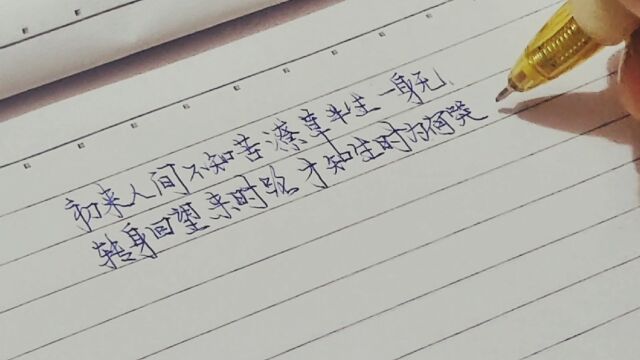 初来人间不知苦潦草半生一身无
转身回望来时路才知生时为何哭